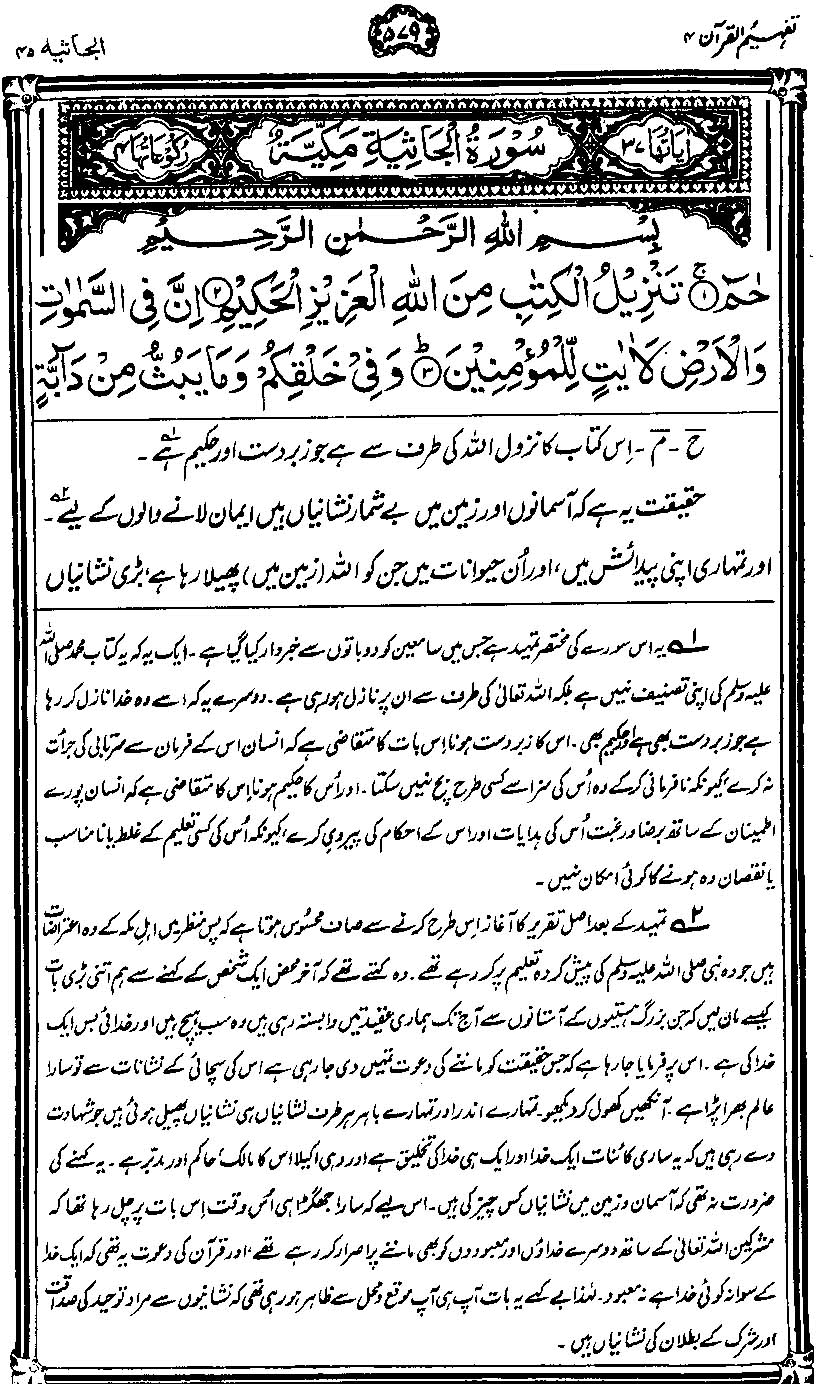 تفہیم القرآن ۴
۵۷۹
الجاثیہ ۴۵
اٰیَاتُهَا ۳۷
سُوْرَةُ الْجَاثِيَةِ مَكِّيَّةٌ
رُكُوْعَاتُهَا ۴
بِسْمِ اللهِ الرَّحْمٰنِ الرَّحِيْمِ
حٰمٓ ۚ﴿۱﴾ تَنْزِيْلُ الْكِتٰبِ مِنَ اللهِ الْعَزِيْزِ الْحَكِيْمِ ﴿۲﴾ اِنَّ فِي السَّمٰوٰتِ
وَالْاَرْضِ لَاٰيٰتٍ لِّلْمُؤْمِنِيْنَ ؕ﴿۳﴾ وَفِيْ خَلْقِكُمْ وَمَا يَبُثُّ مِنْ دَآبَّةٍ
ح - م - اِس کتاب کا نزول اللہ کی طرف سے ہے جو زبردست اور حکیم ہے۱؎۔
حقیقت یہ ہے کہ آسمانوں اور زمین میں بے شمار نشانیاں ہیں ایمان لانے والوں کے لیے۲؎۔
اور تمہاری اپنی پیدائش میں، اور اُن حیوانات میں جن کو اللہ (زمین میں) پھیلا رہا ہے، بڑی نشانیاں
۱؎ یہ اس سورے کی مختصر تمہید ہے جس میں سامعین کو دو باتوں سے خبردار کیا گیا ہے۔ ایک یہ کہ یہ کتاب محمد صلی اللہ
علیہ وسلم کی اپنی تصنیف نہیں ہے بلکہ اللہ تعالیٰ کی طرف سے ان پر نازل ہو رہی ہے۔ دوسرے یہ کہ اسے وہ خدا نازل کر رہا
ہے جو زبردست بھی ہے اور حکیم بھی۔ اس کا زبردست ہونا اِس بات کا متقاضی ہے کہ انسان اس کے فرمان سے سرتابی کی جرأت
نہ کرے، کیونکہ نافرمانی کر کے وہ اُس کی سزا سے کسی طرح بچ نہیں سکتا۔ اور اُس کا حکیم ہونا اِس کا متقاضی ہے کہ انسان پورے
اطمینان کے ساتھ برضا و رغبت اُس کی ہدایات اور اس کے احکام کی پیروی کرے، کیونکہ اُس کی کسی تعلیم کے غلط یا نامناسب
یا نقصان دہ ہونے کا کوئی امکان نہیں۔
۲؎ تمہید کے بعد اصل تقریر کا آغاز اِس طرح کرنے سے صاف محسوس ہوتا ہے کہ پس منظر میں اہلِ مکہ کے وہ اعتراضات
ہیں جو وہ نبی صلی اللہ علیہ وسلم کی پیش کردہ تعلیم پر کر رہے تھے۔ وہ کہتے تھے کہ آخر محض ایک شخص کے کہنے سے ہم اتنی بڑی بات
کیسے مان لیں کہ جن بزرگ ہستیوں کے آستانوں سے آج تک ہماری عقیدتیں وابستہ رہی ہیں وہ سب ہیچ ہیں اور خدائی بس ایک
خدا کی ہے۔ اس پر فرمایا جا رہا ہے کہ جس حقیقت کو ماننے کی دعوت تمہیں دی جا رہی ہے اس کی سچائی کے نشانات سے تو سارا
عالم بھرا پڑا ہے۔ آنکھیں کھول کر دیکھو۔ تمہارے اندر اور تمہارے باہر ہر طرف نشانیاں ہی نشانیاں پھیلی ہوئی ہیں جو شہادت
دے رہی ہیں کہ یہ ساری کائنات ایک خدا اور ایک ہی خدا کی تخلیق ہے اور وہی اکیلا اس کا مالک، حاکم اور مدبّر ہے۔ یہ کہنے کی
ضرورت نہ تھی کہ آسمان و زمین میں نشانیاں کس چیز کی ہیں۔ اس لیے کہ سارا جھگڑا ہی اُس وقت اِس بات پر چل رہا تھا کہ
مشرکین اللہ تعالیٰ کے ساتھ دوسرے خداؤں اور معبودوں کو بھی ماننے پر اصرار کر رہے تھے، اور قرآن کی دعوت یہ تھی کہ ایک خدا
کے سوا نہ کوئی خدا ہے نہ معبود۔ لہٰذا بے کہے یہ بات آپ ہی آپ موقع و محل سے ظاہر ہو رہی تھی کہ نشانیوں سے مراد توحید کی صداقت
اور شرک کے بطلان کی نشانیاں ہیں۔